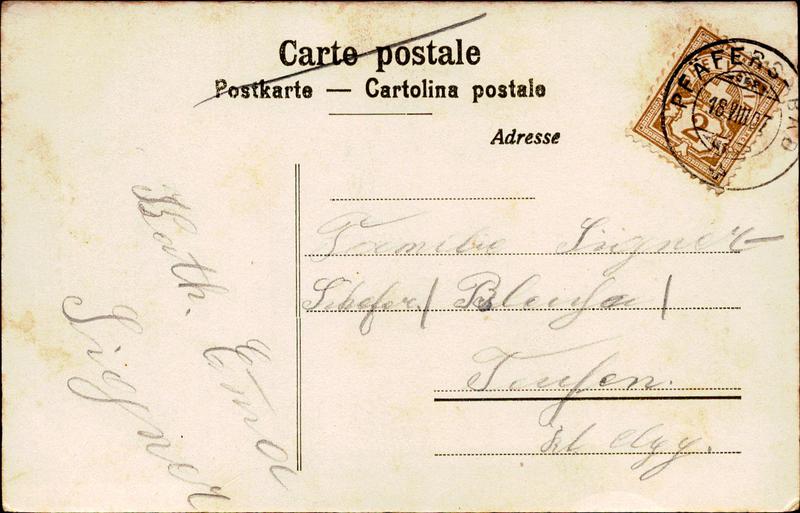 Carte postale
Postkarte — Cartolina postale
Adresse
PFÄFERS-BAD
16.VIII.07
2
Familie Signer
Schefer / Blensa /
Teufen.
Kt Apg.
Kath. Emma
Signer